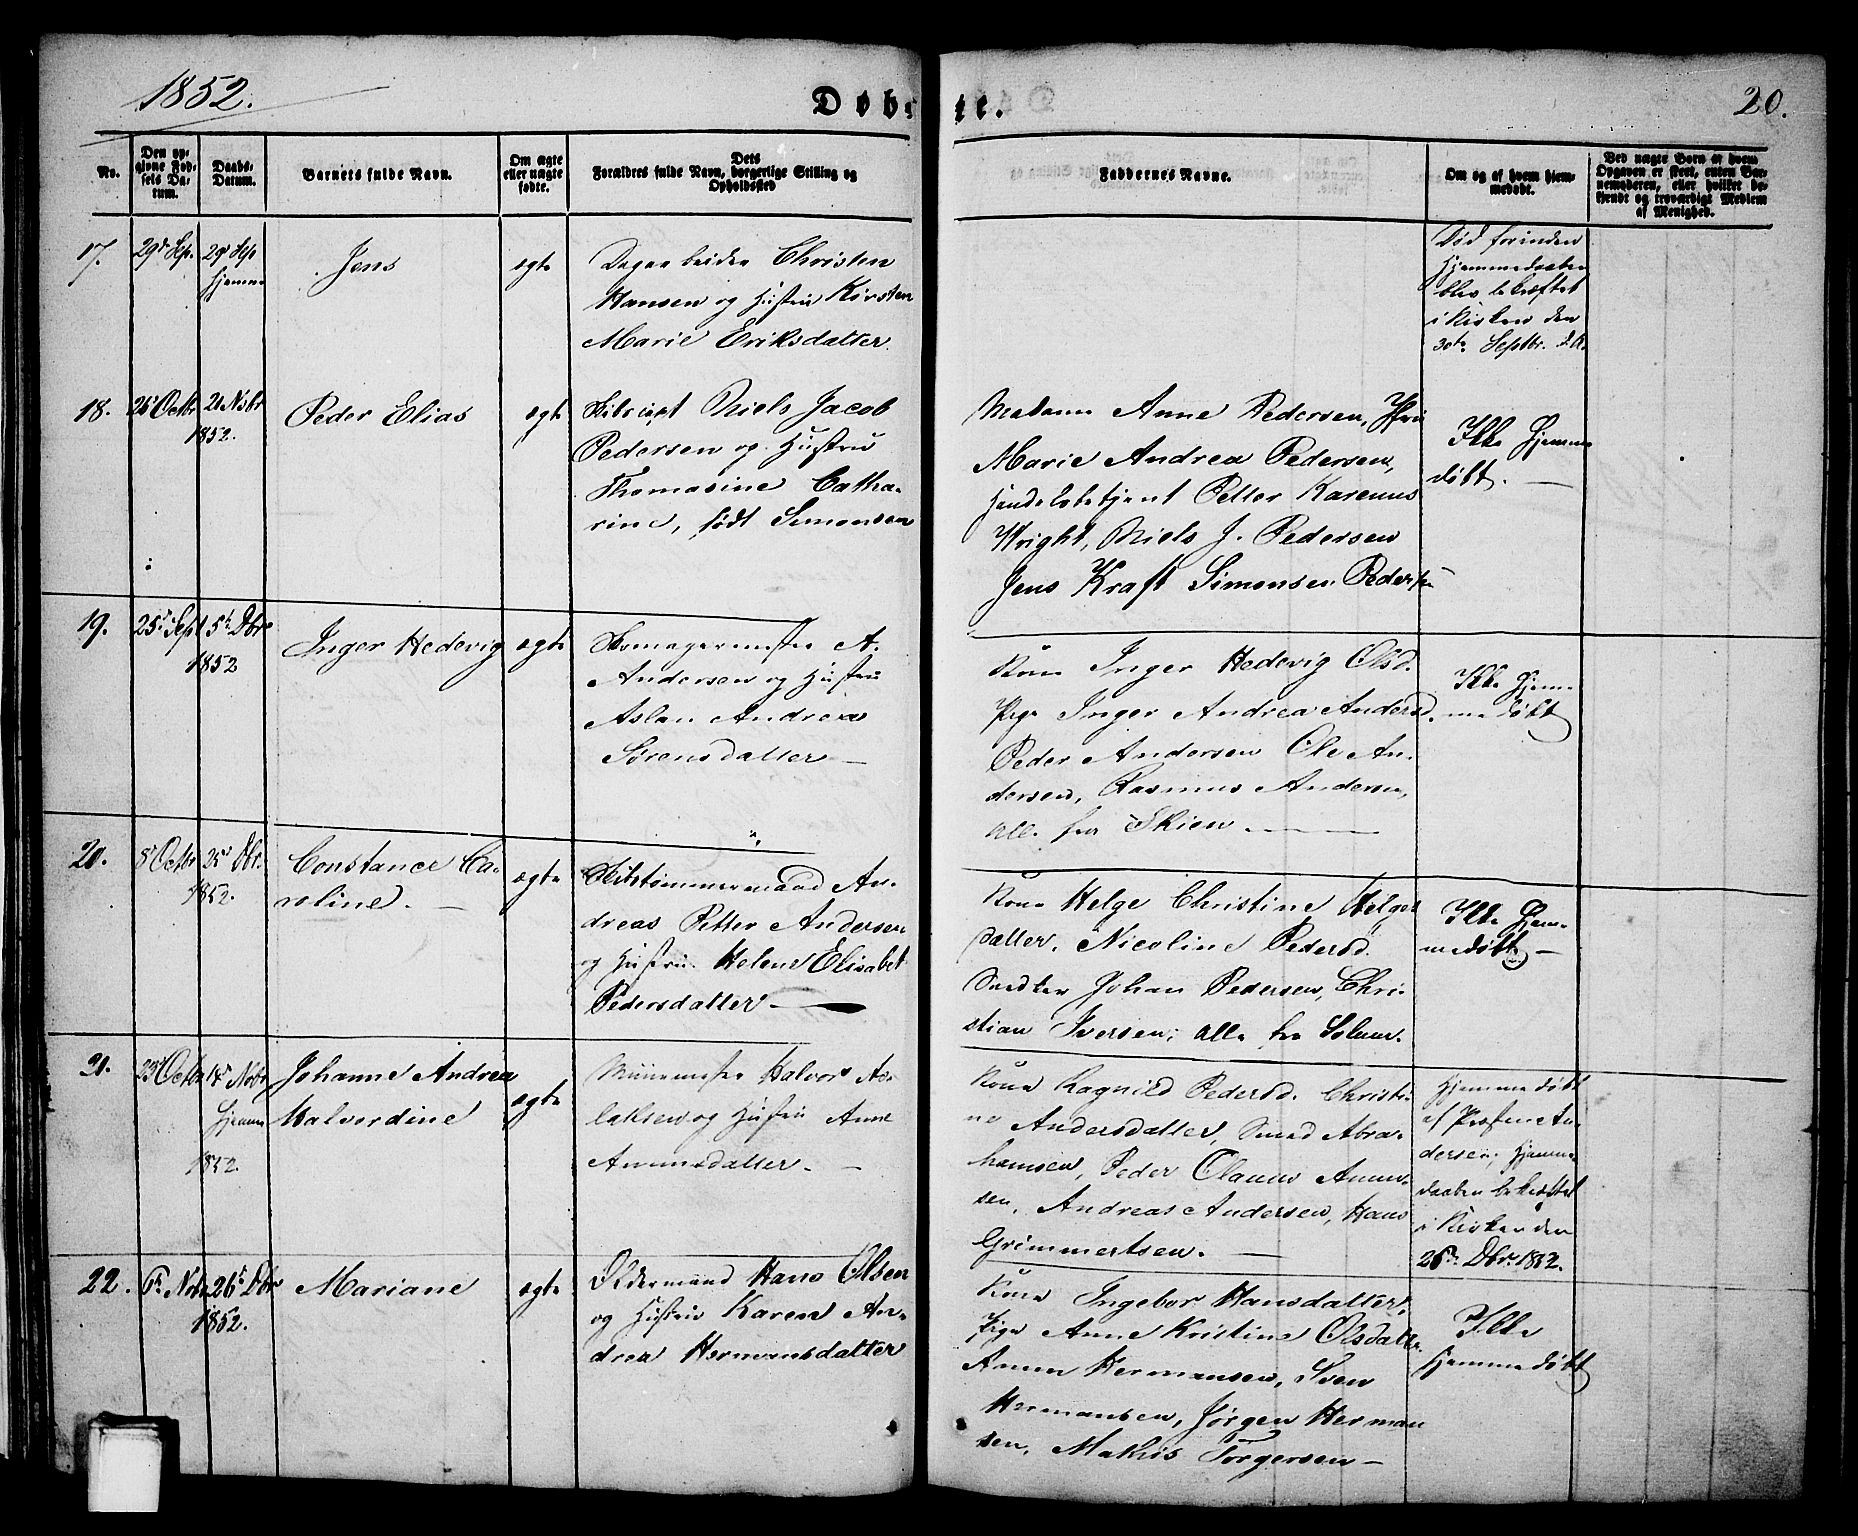 1852.
Døbte.
20.
No.
Den op-
givne Fød-
sels Da-
tum.
Daabs-
Datum.
Barnets fulde Navn.
Om ægte
eller uægte
fødte.
Dets
Forældres fulde Navn, borgerlige Stilling og
Opholdssted
Faddernes Navne.
Om og af hvem hjem-
medøbt.
Ved uægte Børn af hvem
Opgaven er skeet, enten Bar-
nemoderen, eller hvilket be-
kjendt og troværdigt Medlem
af Menighed.
17.
29de Sep.
29de Sep
hjemme
Jens
ægte
Dagarbeider Christen
Hansen og Hustru Kirsten
Marie Eriksdatter
Død forinden
Hjemmedaaben
blev bekræftet
i Kirken den
30te Septbr.
18.
26 Octbr
21 Novbr
1852.
Peder Elias
ægte
Niels Jacob
Pedersen og Hustru
Thomasine Catha-
rine, født Simonsen
Madame Anne Pedersen, Jfru
Marie Andrea Pedersen,
Handelsbetjent Petter Karenus
Wright, Niels J. Pedersen
Jens Kraft Simonsen Pedersen
Ikke hjemme
døbt. —
19.
25de Sept
5te Dbr
1852
Inger Hedevig
ægte
Skomagermester A.
Andersen og Hustru
Aslau Andrea
Sørensdatter —
Kone Inger Hedevig Olsd.
Pige Inger Andrea Andersd.
Peder Andersen Ole An-
dersen, Rasmus Andersen,
all. fra Skien —
Ikke hjem-
medøbt
20.
8 Octbr
25de Dbr.
1852.
Constance Ca-
roline. —
ægte
Skibstømmermand An-
dreas Petter Andersen
og Hustru Helene Elisabet
Pedersdatter —
Kone Helge Christine Helges
datter, Nicoline Pedersd.
Snedker Johan Pedersen, Chri-
stian Iversen; alle fra Solum.
Ikke Hjem-
medøbt —
21.
23 Octbr
Novbr
hjemme
1852.
Johanne Andrea
Halvordine
ægte
Halvor As-
laksen og Hustru Anne
Amunsdatter. —
Kone Ragnild Pedersd. Christi-
ne Andersdatter, Smed Abra-
hamsen, Peder Olaus Amun-
sen, Andreas Andersen, Hans
Grimmertsen. —
Hjemmedøbt
af Præsten An-
dersen; Hjemme-
daaben bekræftet
i Kirken den
26de Dbr. 1852.
22.
Novbr
26de Dbr
1852.
Mariane
ægte
Oldermand Hans Olsen
og Hustru Karen An-
drea Hermansdatter
Kone Ingebor Hansdatter,
Pige Anne Kristine Olsdatter
Amun Hermansen, Sven
Hermansen, Jørgen Herman
sen, Mathis Torgersen —
Ikke
hjemmedøbt